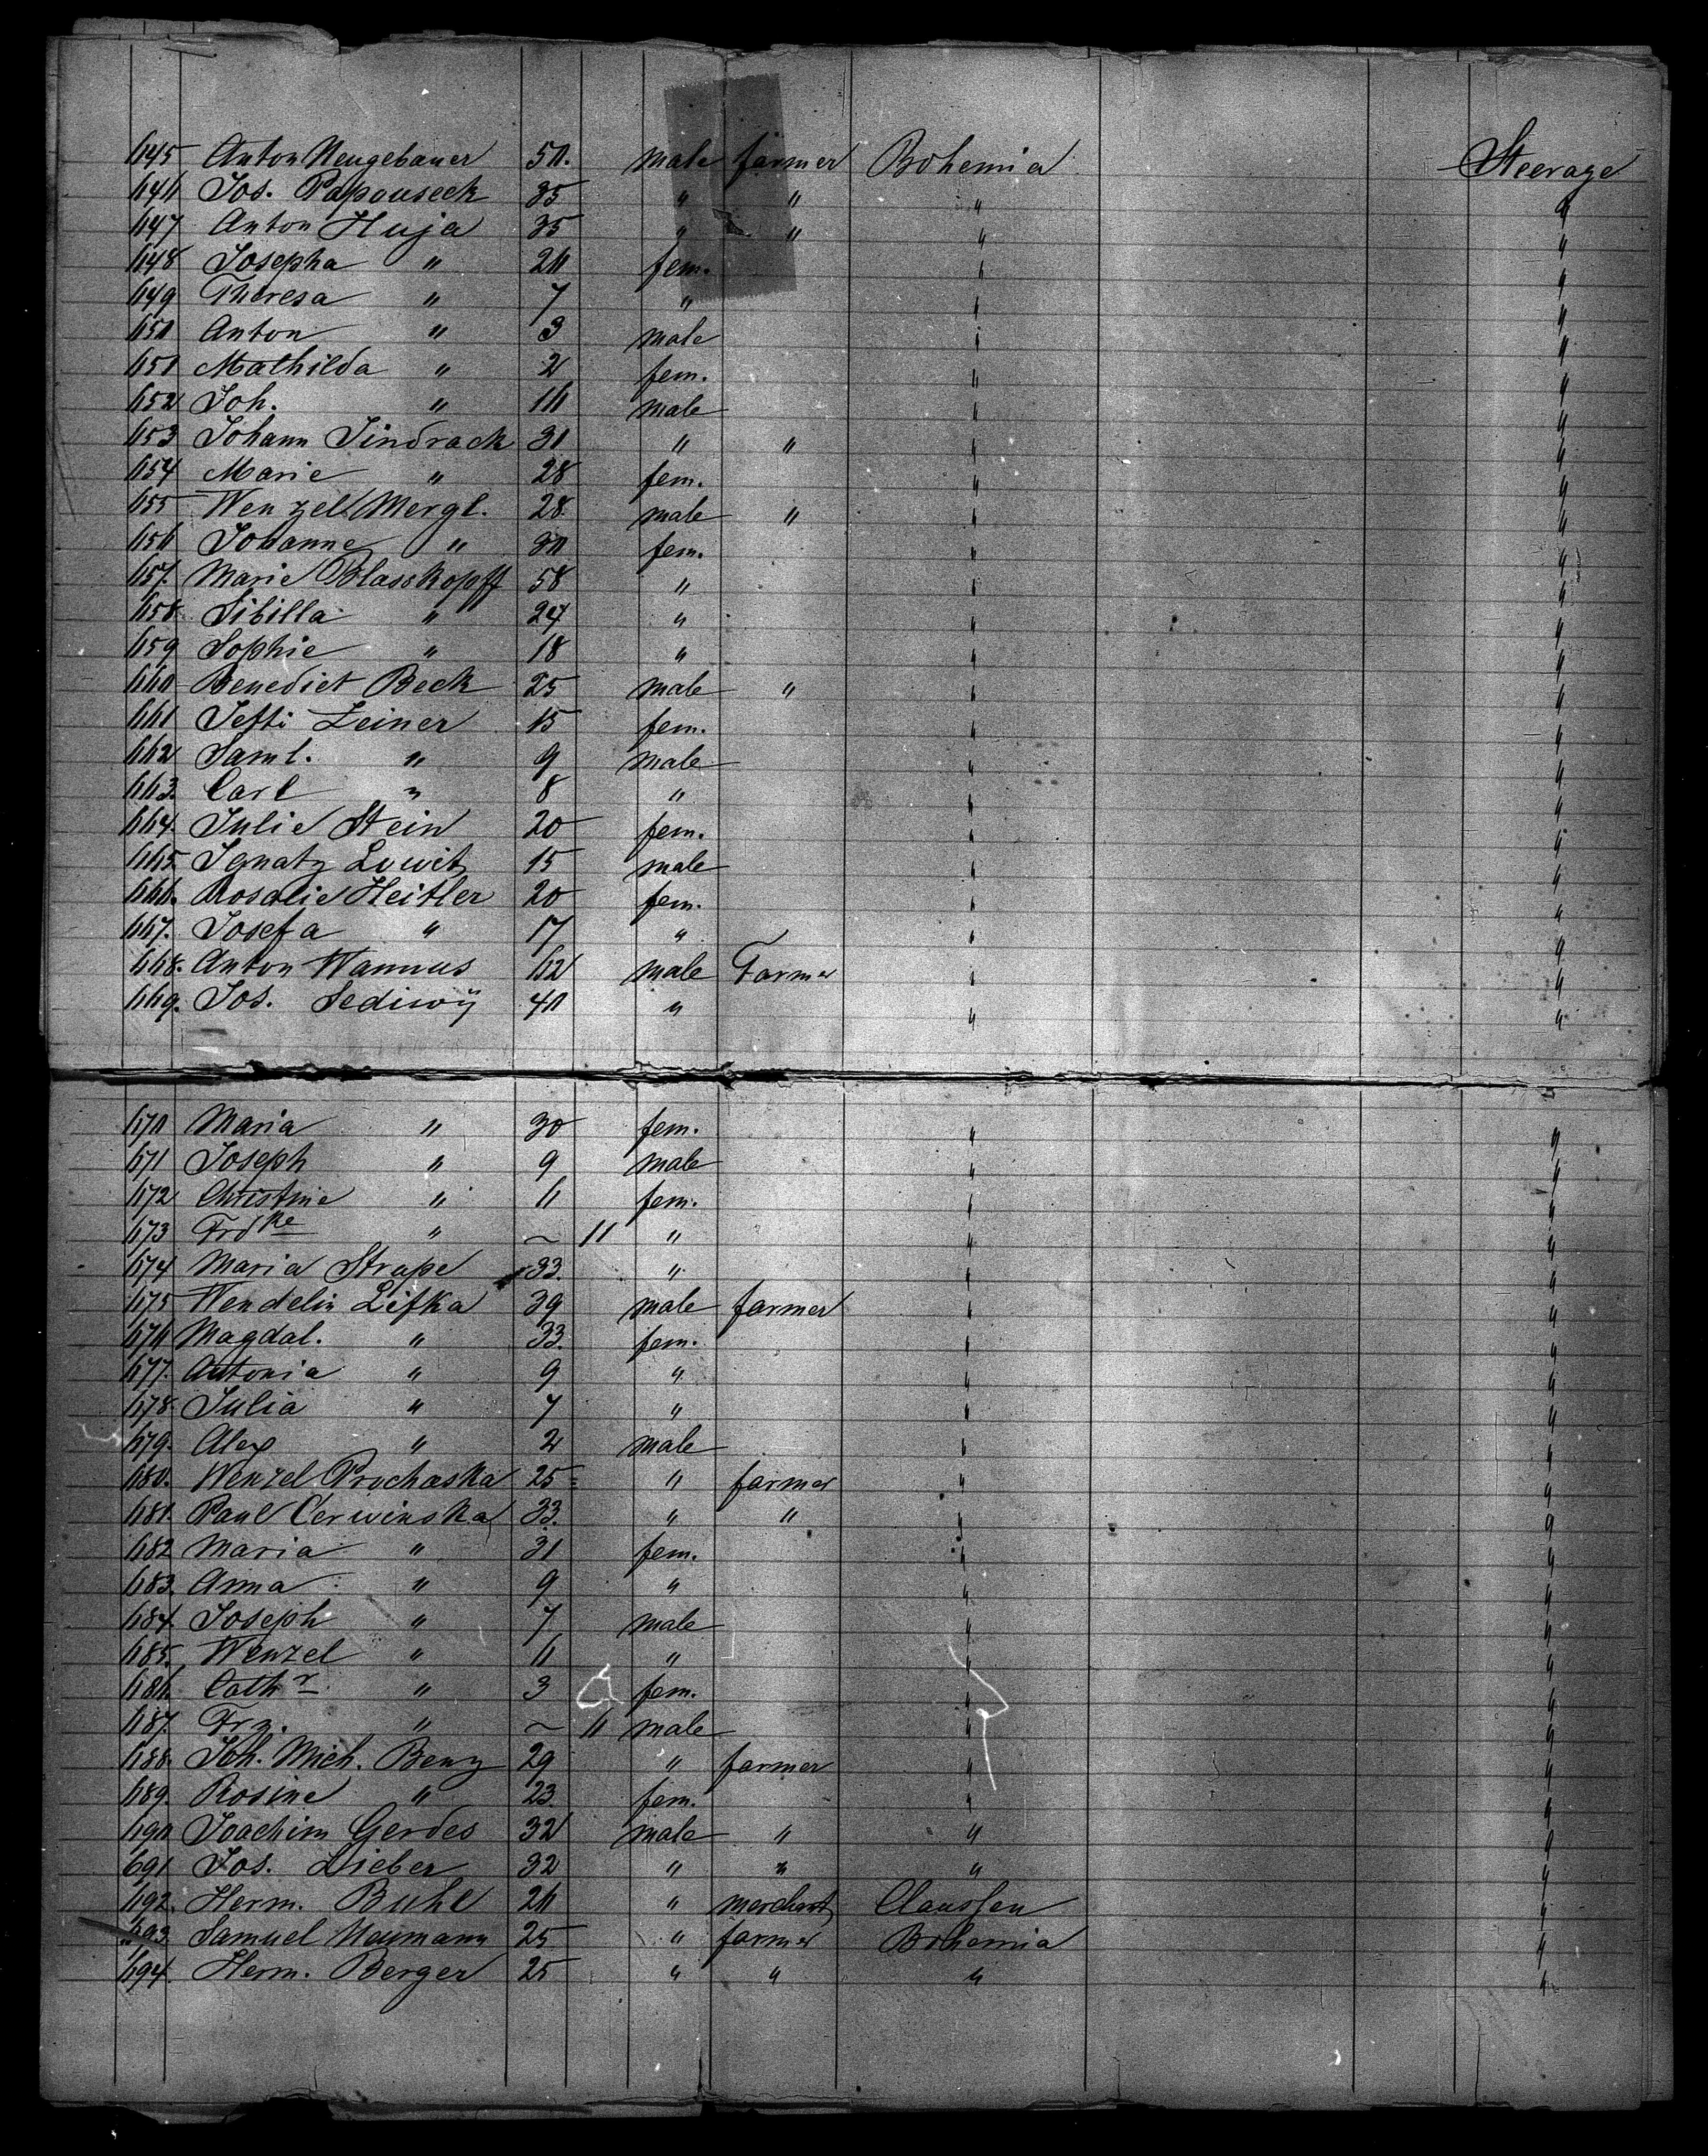 645 Anton Neugebauer 50. male farmer Bohemia Steerage
646 Jos. Papouseck 35 " " " "
647 Anton Huja 35 " " " "
648 Josepha " 26 fem. " "
649 Theresa " 7 " " "
650 Anton " 3 male " "
651 Mathilda " 2 fem. " "
652 Joh. " male " "
653 Johann Jindrack 31 " " " "
654 Marie " 28 fem. " "
655 Wenzel Mergl. 28 male " " "
656 Johanne " 30 fem. " "
657. Marie Blasskopff 58 " " "
658 Sibilla " 24 " " "
659 Sophie " 18 " " "
660 Benedict Beck 25 male " " "
661 Jefti Leiner 15 fem. " "
662 Saml. " 9 male " "
663. Carl " 8 " " "
664. Julie Stein 20 fem. " "
665. Ignatz Lowit 15 male " "
666. Rosalie Heitler 20 fem. " "
667. Josefa " 17 " " "
668. Anton Wannus 62 male Farmer " "
669. Jos. Sediwÿ 40 " " "
670 Maria " 30 fem. " "
671 Joseph " 9 male " "
672 Christine " 6 fem. " "
673 Frdke " ~ 11 " " "
674 Maria Strape 33. " " "
675 Wendelin Lifka 39 male farmer " "
676 Magdal. " 33. fem. " "
677. Antonia " 9 " " "
678. Julia " 7 " " "
679. Alex " 2 male " "
680. Wenzel Prochaska 25 " farmer " "
681. Paul Cerwinska 33. " " " "
682 Maria " 31 fem. " "
683. Anna " 9 " " "
684. Joseph " 7 male " "
685. Wenzel " 6 " " "
686. Cathr " 3 fem. " "
687. Frz. " ~ 6 male " "
688. Joh. Mich. Benz 29 " farmer " "
689. Rosine " 23. fem. " "
690 Joachim Gerdes 32 male " " "
691 Jos. Lieber 32 " " " "
692. Herm. Buhl 26 " merchant Claussen "
693 Samuel Neumann 25 " farmer Bohemia "
694. Herm. Berger 25 " " " "